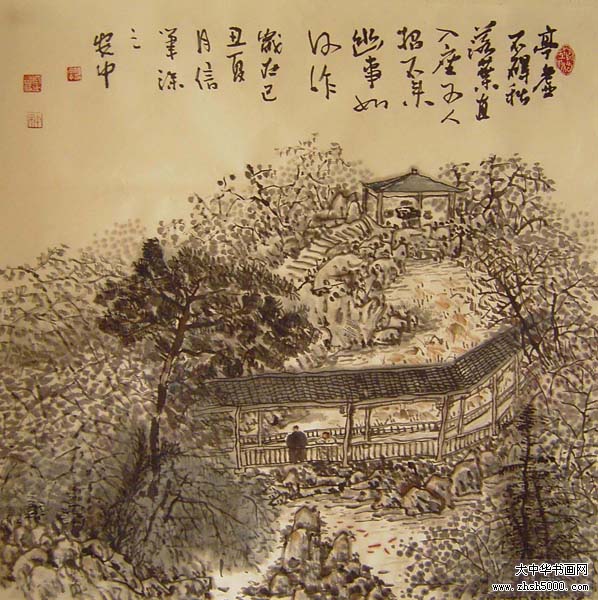 亭虛
不碍秋
落葉直
入座可人
招不来
幽事如
何作
歲在己
丑夏
月信
筆塗
之
大中华书画网
www.zhsh5000.com